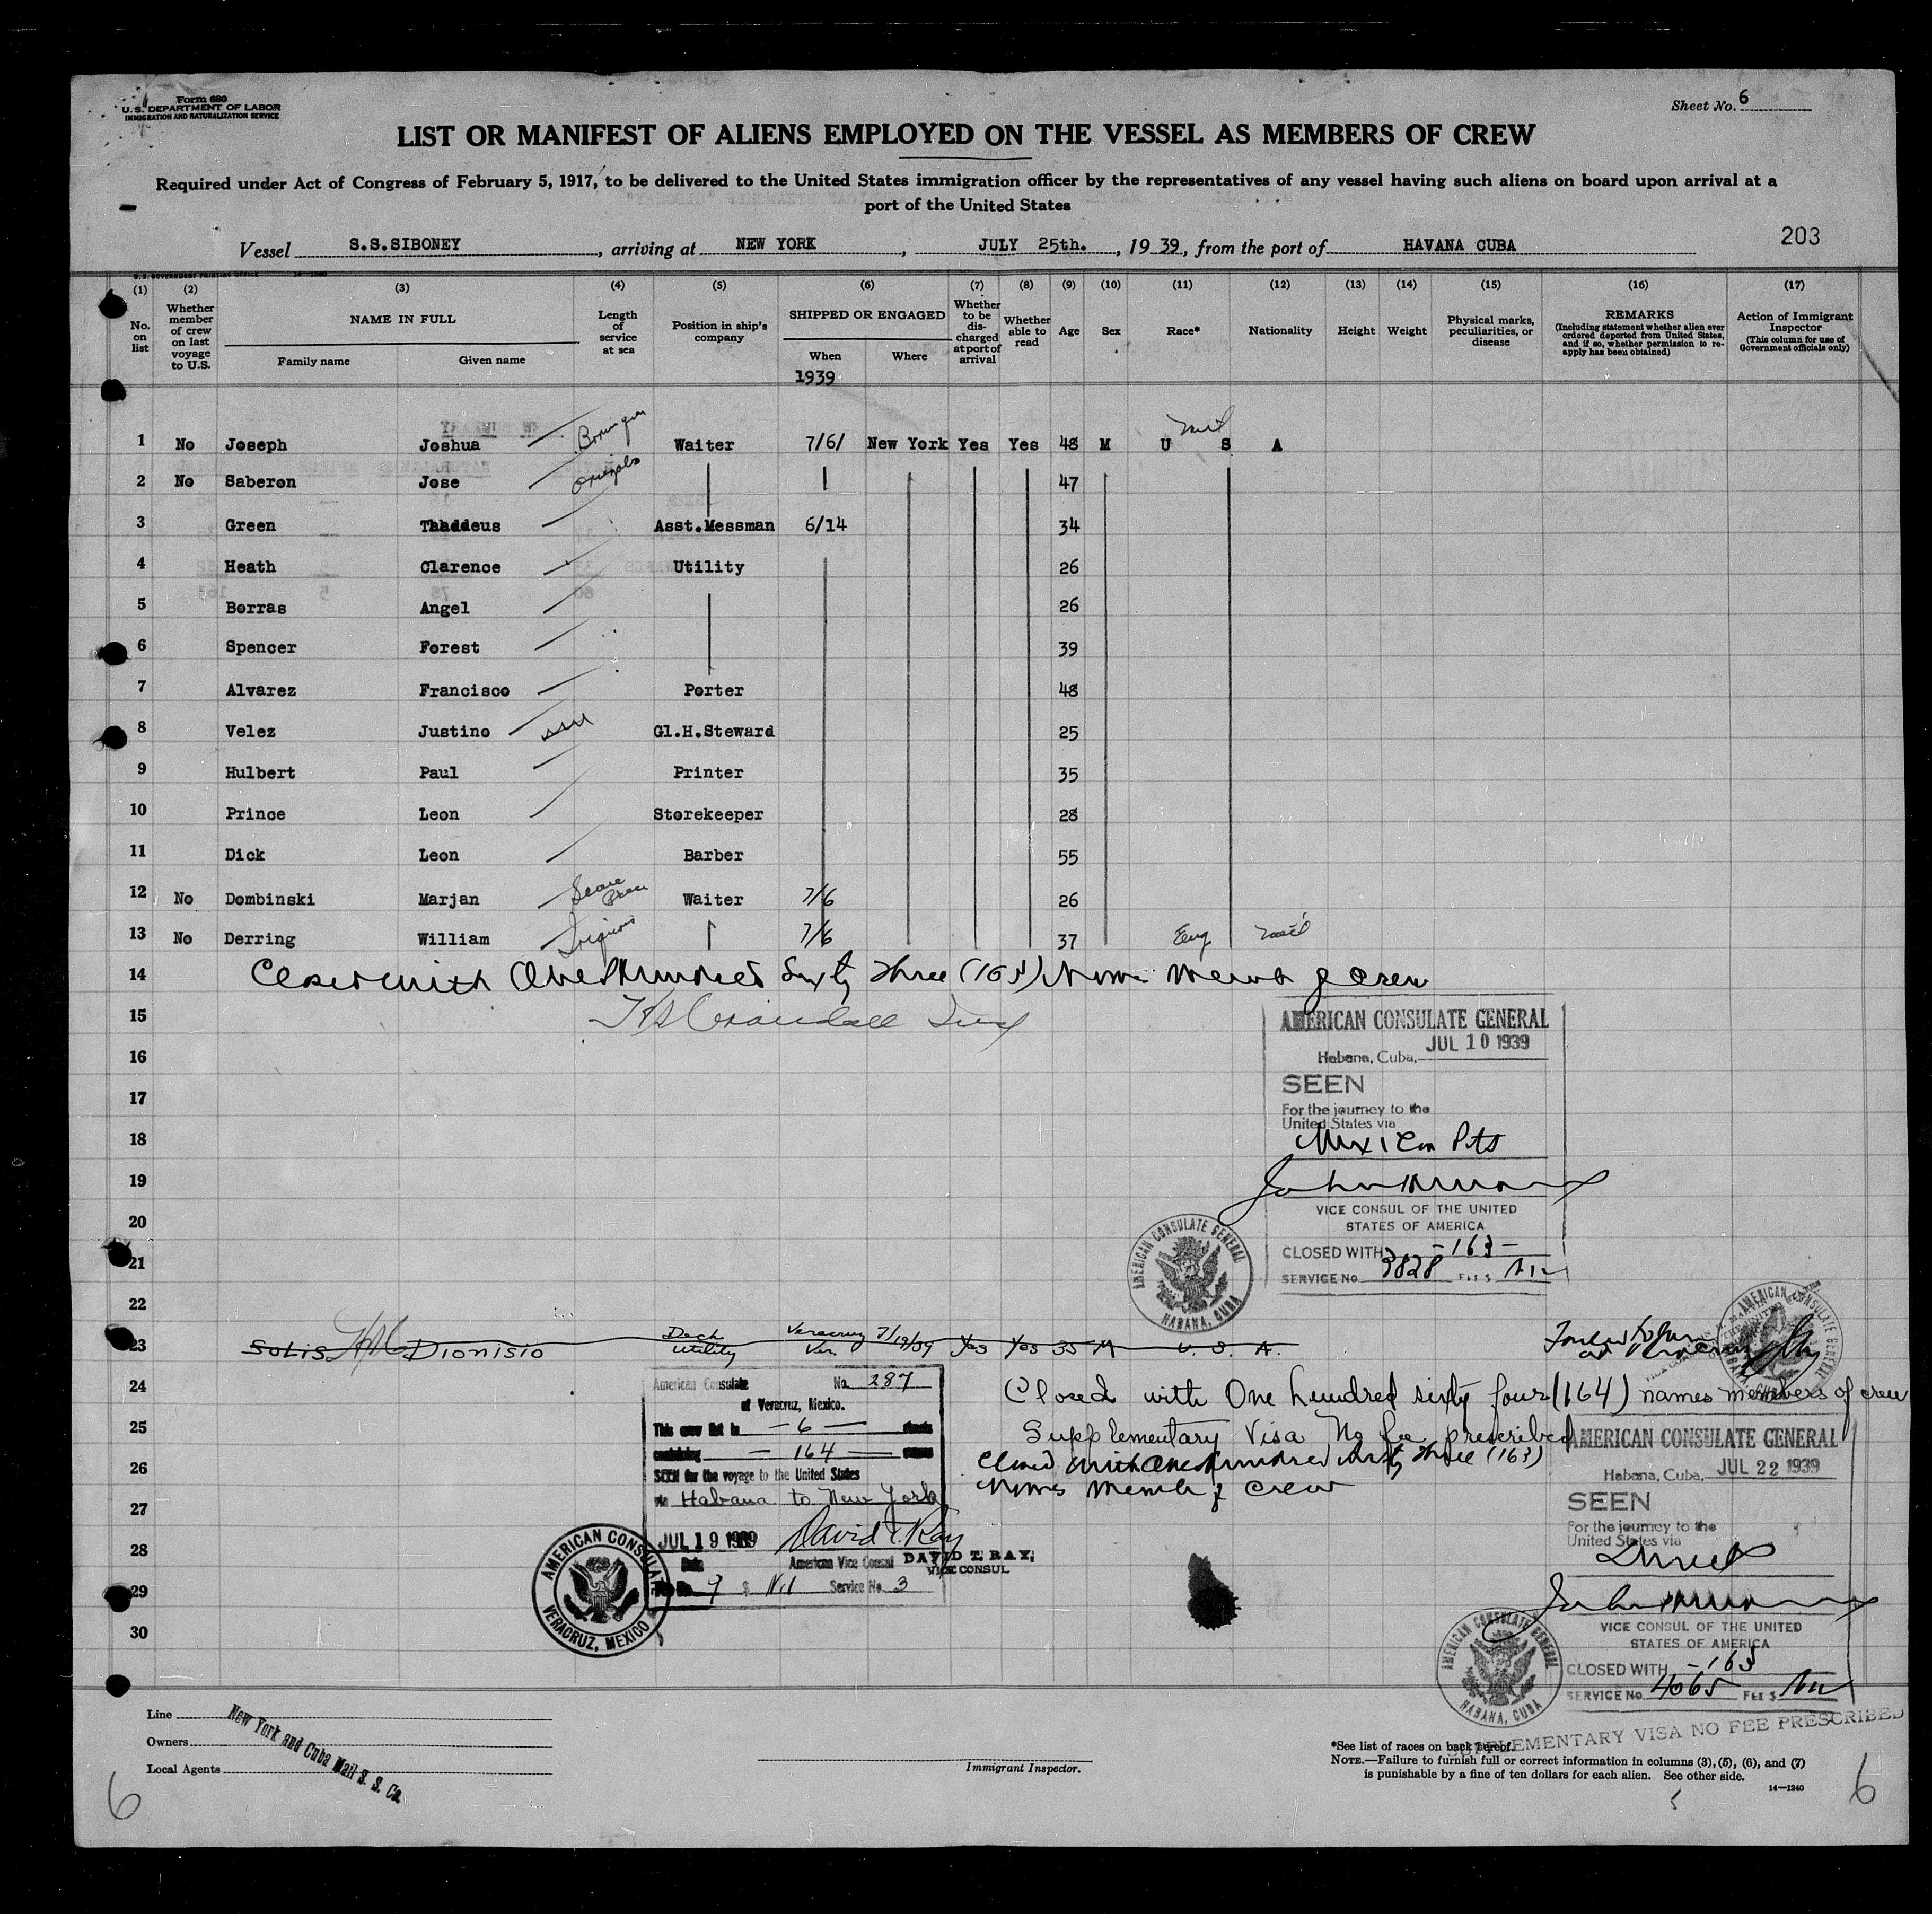 Form 680
U. S. DEPARTMENT OF LABOR
IMMIGRATION AND NATURALIZATION SERVICE
Sheet No. 6
LIST OR MANIFEST OF ALIENS EMPLOYED ON THE VESSEL AS MEMBERS OF CREW
Required under Act of Congress of February 5, 1917, to be delivered to the United States immigration officer by the representatives of any vessel having such aliens on board upon arrival at a
port of the United States
203
Vessel S.S.SIBONEY, arriving at NEW YORK, JULY 25th., 1939, from the port of HAVANA CUBA
U.S. GOVERNMENT PRINTING OFFICE 14—1240
(1) (2) (3) (4) (5) (6) (7) (8) (9) (10) (11) (12) (13) (14) (15) (16) (17)
No. on list
Whether member of crew on last voyage to U.S.
NAME IN FULL
Family name Given name
Length of service at sea
Position in ship's company
SHIPPED OR ENGAGED
When Where
Whether to be discharged at port of arrival
Whether able to read
Age
Sex
Race*
Nationality
Height
Weight
Physical marks, peculiarities, or disease
REMARKS
(Including statement whether alien ever ordered deported from United States, and if so, whether permission to reapply has been obtained)
Action of Immigrant Inspector
(This column for use of Government officials only)
1939
1 No Joseph Joshua Waiter 7/6/ New York Yes Yes 48 M U S A
2 No Saberon Jose 47
3 Green Thaddeus Asst.Messman 6/14 34
4 Heath Clarence Utility 26
5 Borras Angel 26
6 Spencer Forest 39
7 Alvarez Francisco Porter 48
8 Velez Justino Gl.H.Steward 25
9 Hulbert Paul Printer 35
10 Prince Leon Storekeeper 28
11 Dick Leon Barber 55
12 No Dombinski Marjan Waiter 7/6 26
13 No Derring William 7/6 37 Eng
14 Closed with One Hundred Sixty Three (163) Names Members of Crew
15
16
17
18
19
20
21
22
AMERICAN CONSULATE GENERAL
JUL 10 1939
Habana, Cuba,
SEEN
For the journey to the
United States via
Mexican Pts
VICE CONSUL OF THE UNITED
STATES OF AMERICA
CLOSED WITH -163-
SERVICE No. 3828 FEE $ Nil
AMERICAN CONSULATE GENERAL
HABANA, CUBA
23 Solis Dionisio Deck Utility Veracruz Ver. 7/19/39 Yes Yes 35 M U. S. A.
24 Closed with One hundred sixty four (164) names members of crew
25 Supplementary Visa No fee prescribed
26 Closed with One hundred sixty three (163)
27 Names Members of Crew
28
29
30
American Consulate No. 287
at Veracruz, Mexico.
This crew list in — 6 — sheets
containing — 164 — names
SEEN for the voyage to the United States
via Habana to New York
JUL 19 1939 David T. Ray
Date American Vice Consul DAVID T. RAY,
VICE CONSUL
9 $ Nil Service No. 3
AMERICAN CONSULATE
VERACRUZ, MEXICO
AMERICAN CONSULATE GENERAL
Habana, Cuba, JUL 22 1939
SEEN
For the journey to the
United States via
Direct
VICE CONSUL OF THE UNITED
STATES OF AMERICA
CLOSED WITH -163
SERVICE No. 4065 FEE $ Nil
AMERICAN CONSULATE GENERAL
HABANA, CUBA
SUPPLEMENTARY VISA NO FEE PRESCRIBED
Line
Owners
Local Agents
New York and Cuba Mail S. S. Co.
Immigrant Inspector.
*See list of races on back hereof.
NOTE.—Failure to furnish full or correct information in columns (3), (5), (6), and (7)
is punishable by a fine of ten dollars for each alien. See other side.
14—1240
6
6